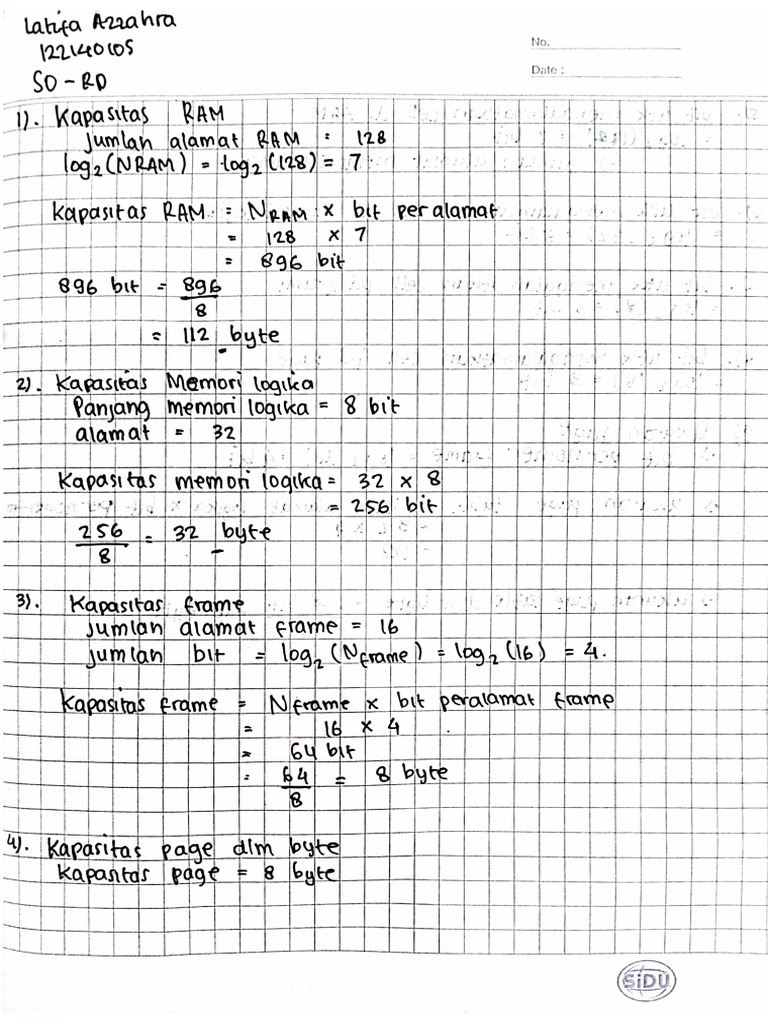 Latifa Azzahra
122140105
SO - RD
No.
Date :
1). Kapasitas RAM
Jumlah alamat RAM = 128
log₂(NRAM) = log₂(128) = 7
Kapasitas RAM = N_RAM × bit per alamat
= 128 × 7
= 896 bit
896 bit = 896/8
= 112 byte
2). Kapasitas Memori logika
Panjang memori logika = 8 bit
alamat = 32
Kapasitas memori logika = 32 × 8
= 256 bit
256/8 = 32 byte
3). Kapasitas frame
Jumlah alamat frame = 16
Jumlah bit = log₂(N_frame) = log₂(16) = 4.
Kapasitas frame = N frame × bit peralamat frame
= 16 × 4
= 64 bit
= 64/8 = 8 byte
4). Kapasitas page dlm byte
Kapasitas page = 8 byte
SiDU